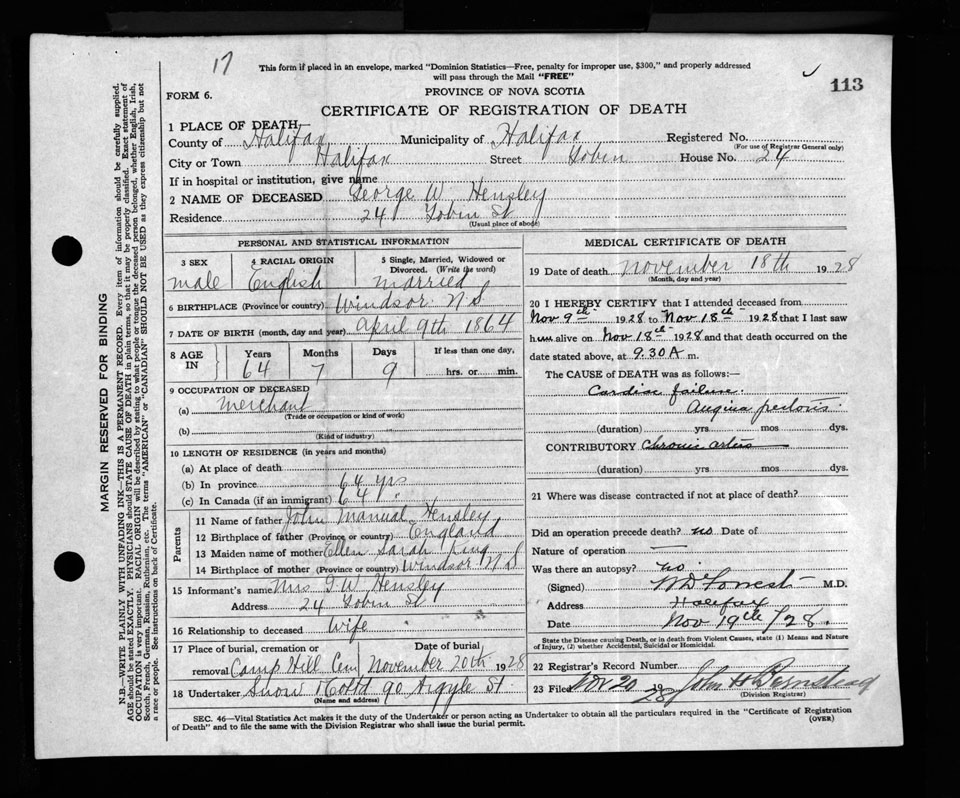 17
This form if placed in an envelope, marked "Dominion Statistics—Free, penalty for improper use, $300," and properly addressed
will pass through the Mail "FREE"
113
FORM 6.
PROVINCE OF NOVA SCOTIA
CERTIFICATE OF REGISTRATION OF DEATH
1 PLACE OF DEATH
County of Halifax Municipality of Halifax Registered No.
(For use of Registrar General only)
City or Town Halifax Street Tobin House No. 24
If in hospital or institution, give name
2 NAME OF DECEASED George W Hensley
Residence 24 Tobin St
(Usual place of abode)
PERSONAL AND STATISTICAL INFORMATION
3 SEX male
4 RACIAL ORIGIN English
5 Single, Married, Widowed or Divorced. (Write the word) married
6 BIRTHPLACE (Province or country) Windsor N S
7 DATE OF BIRTH (month, day and year) April 9th 1864
8 AGE IN Years 64 Months 7 Days 9 If less than one day, hrs. or min.
9 OCCUPATION OF DECEASED
(a) merchant
(Trade or occupation or kind of work)
(b)
(Kind of industry)
10 LENGTH OF RESIDENCE (in years and months)
(a) At place of death
(b) In province 64 yrs
(c) In Canada (if an immigrant) 64 "
Parents
11 Name of father John Manual Hensley
12 Birthplace of father (Province or country) England
13 Maiden name of mother Ellen Sarah King
14 Birthplace of mother (Province or country) Windsor N S
15 Informant's name Mrs G W Hensley
Address 24 Tobin St
16 Relationship to deceased wife
17 Place of burial, cremation or
removal Camp Hill Cem November 20th 1928
18 Undertaker Snow & Co Ltd 90 Argyle St
(Name and address)
MEDICAL CERTIFICATE OF DEATH
19 Date of death November 18th 1928
(Month, day and year)
20 I HEREBY CERTIFY that I attended deceased from
Nov 9th 1928 to Nov 18th 1928 that I last saw
him alive on Nov 18th 1928 and that death occurred on the
date stated above, at 9.30 A m.
The CAUSE of DEATH was as follows:—
Cardiac failure.
Angina pectoris
(duration) yrs mos dys.
CONTRIBUTORY Chronic
(duration) yrs. mos. dys.
21 Where was disease contracted if not at place of death?
Did an operation precede death? no Date of
Nature of operation —
Was there an autopsy? No
(Signed) W D Forrest M.D.
Address Halifax
Date Nov 19th /28.
State the Disease causing Death, or in death from Violent Causes, state (1) Means and Nature
of Injury, (2) whether Accidental, Suicidal or Homicidal.
22 Registrar's Record Number
23 Filed Nov 20 1928 John H Barnstead
(Division Registrar)
SEC. 46—Vital Statistics Act makes it the duty of the Undertaker or person acting as Undertaker to obtain all the particulars required in the "Certificate of Registration
of Death" and to file the same with the Division Registrar who shall issue the burial permit.
(OVER)
MARGIN RESERVED FOR BINDING
N.B.—WRITE PLAINLY WITH UNFADING INK—THIS IS A PERMANENT RECORD. Every item of information should be carefully supplied.
AGE should be stated EXACTLY. PHYSICIANS should STATE CAUSE OF DEATH in plain terms, so that it may be properly classified. Exact statement of
OCCUPATION is very important. RACIAL ORIGIN will be described by stating to what people or tongue the deceased person belonged, whether English, Irish,
Scotch, French, German, Russian, Ruthenian, etc. The terms "AMERICAN" or "CANADIAN" SHOULD NOT BE USED as they express citizenship but not
a race or people. See instructions on back of Certificate.